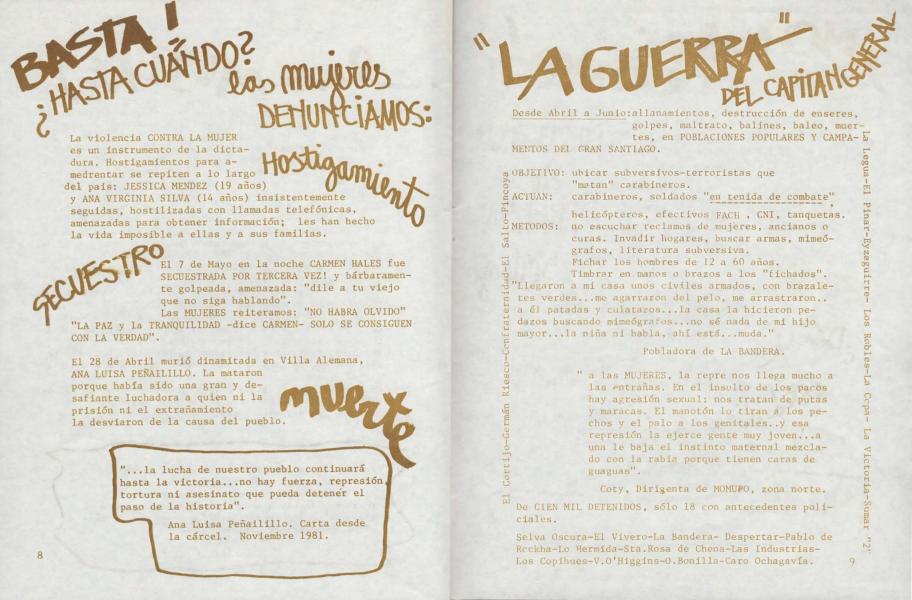 BASTA!
¿HASTA CUÁNDO?
las mujeres
DENUNCIAMOS:
La violencia CONTRA LA MUJER
es un instrumento de la dicta-
dura. Hostigamientos para a-
medrentar se repiten a lo largo
del país: JESSICA MENDEZ (19 años)
y ANA VIRGINIA SILVA (14 años) insistentemente
seguidas, hostilizadas con llamadas telefónicas,
amenazadas para obtener información; les han hecho
la vida imposible a ellas y a sus familias.
Hostigamiento
SECUESTRO
El 7 de Mayo en la noche CARMEN HALES fue
SECUESTRADA POR TERCERA VEZ! y bárbaramen-
te golpeada, amenazada: "dile a tu viejo
que no siga hablando".
Las MUJERES reiteramos: "NO HABRA OLVIDO"
"LA PAZ y la TRANQUILIDAD -dice CARMEN- SOLO SE CONSIGUEN
CON LA VERDAD".
El 28 de Abril murió dinamitada en Villa Alemana,
ANA LUISA PEÑAILILLO. La mataron
porque había sido una gran y de-
safiante luchadora a quien ni la
prisión ni el extrañamiento
la desviaron de la causa del pueblo.
muerte
"...la lucha de nuestro pueblo continuará
hasta la victoria...no hay fuerza, represión,
tortura ni asesinato que pueda detener el
paso de la historia".
Ana Luisa Peñailillo. Carta desde
la cárcel. Noviembre 1981.
8
"LA GUERRA"
DEL CAPITAN GENERAL
Desde Abril a Junio:allanamientos, destrucción de enseres,
golpes, maltrato, balines, baleo, muer-
tes, en POBLACIONES POPULARES Y CAMPA-
MENTOS DEL GRAN SANTIAGO.
OBJETIVO: ubicar subversivos-terroristas que
"matan" carabineros.
ACTUAN: carabineros, soldados "en tenida de combate"
helicópteros, efectivos FACH , CNI, tanquetas.
METODOS: no escuchar reclamos de mujeres, ancianos o
curas. Invadir hogares, buscar armas, mimeó-
grafos, literatura subversiva.
Fichar los hombres de 12 a 60 años.
Timbrar en manos o brazos a los "fichados".
"Llegaron a mi casa unos civiles armados, con brazale-
tes verdes...me agarraron del pelo, me arrastraron..
a él patadas y culatazos...la casa la hicieron pe-
dazos buscando mimeógrafos...no sé nada de mi hijo
mayor...la niña ni habla, ahí está...muda."
Pobladora de LA BANDERA.
" a las MUJERES, la repre nos llega mucho a
las entrañas. En el insulto de los pacos
hay agresión sexual; nos tratan de putas
y maracas. El manotón lo tiran a los pe-
chos y el palo a los genitales..y esa
represión la ejerce gente muy joven...a
una le baja el instinto maternal mezcla-
do con la rabia porque tienen caras de
guaguas".
Coty, Dirigenta de MOMUPO, zona norte.
De CIEN MIL DETENIDOS, sólo 18 con antecedentes poli-
ciales.
Selva Oscura-El Vivero-La Bandera- Despertar-Pablo de
Rockha-Lo Hermida-Sta.Rosa de Chena-Las Industrias-
Los Copihues-V.O'Higgins-O.Bonilla-Caro Ochagavía.
El Cortijo-Germán Riesco-Confraternidad-El Salto-Pincoya
La Legua-El Pinar-Eyzaguirre- Los Robles-La Crpa- La Victoria-Sumar "2"
9